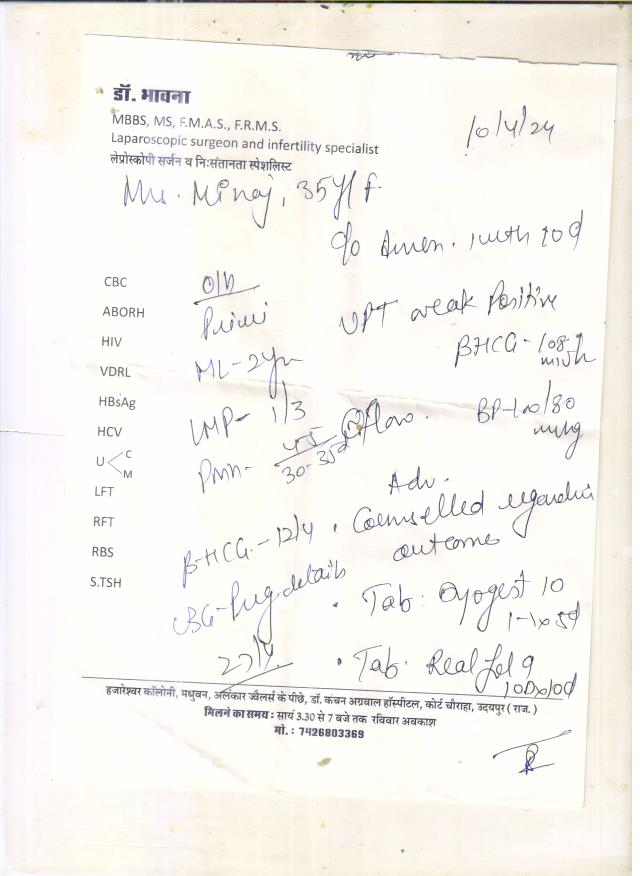 डॉ. भावना
MBBS, MS, F.M.A.S., F.R.M.S.
Laparoscopic surgeon and infertility specialist
लेप्रोस्कोपी सर्जन व नि:संतानता स्पेशलिस्ट
10/4/24
Mrs. Minaj, 35y/f
c/o Amen. 1 mth 10d
CBC
O/H
ABORH
Primi
UPT weak Positive
HIV
BHCG - 108
VDRL
ML - 2yr
HBsAg
LMP - 1/3
BP - 100/80
mmHg
HCV
PMH -
30-35d
flow.
U < C
M
Adv.
LFT
Counselled regarding
outcome
RFT
RBS
B-HCG - 12/4
S.TSH
USG - Preg details
27/4
. Tab. Oyogest 10
1-1 x 5d
. Tab. Real fol 9
1OD x 10d
हजारेश्वर कॉलोनी, मधुवन, अलंकार ज्वैलर्स के पीछे, डॉ. कंचन अग्रवाल हॉस्पीटल, कोर्ट चौराहा, उदयपुर ( राज. )
मिलने का समय : सायं 3.30 से 7 बजे तक रविवार अवकाश
मो. : 7426803369